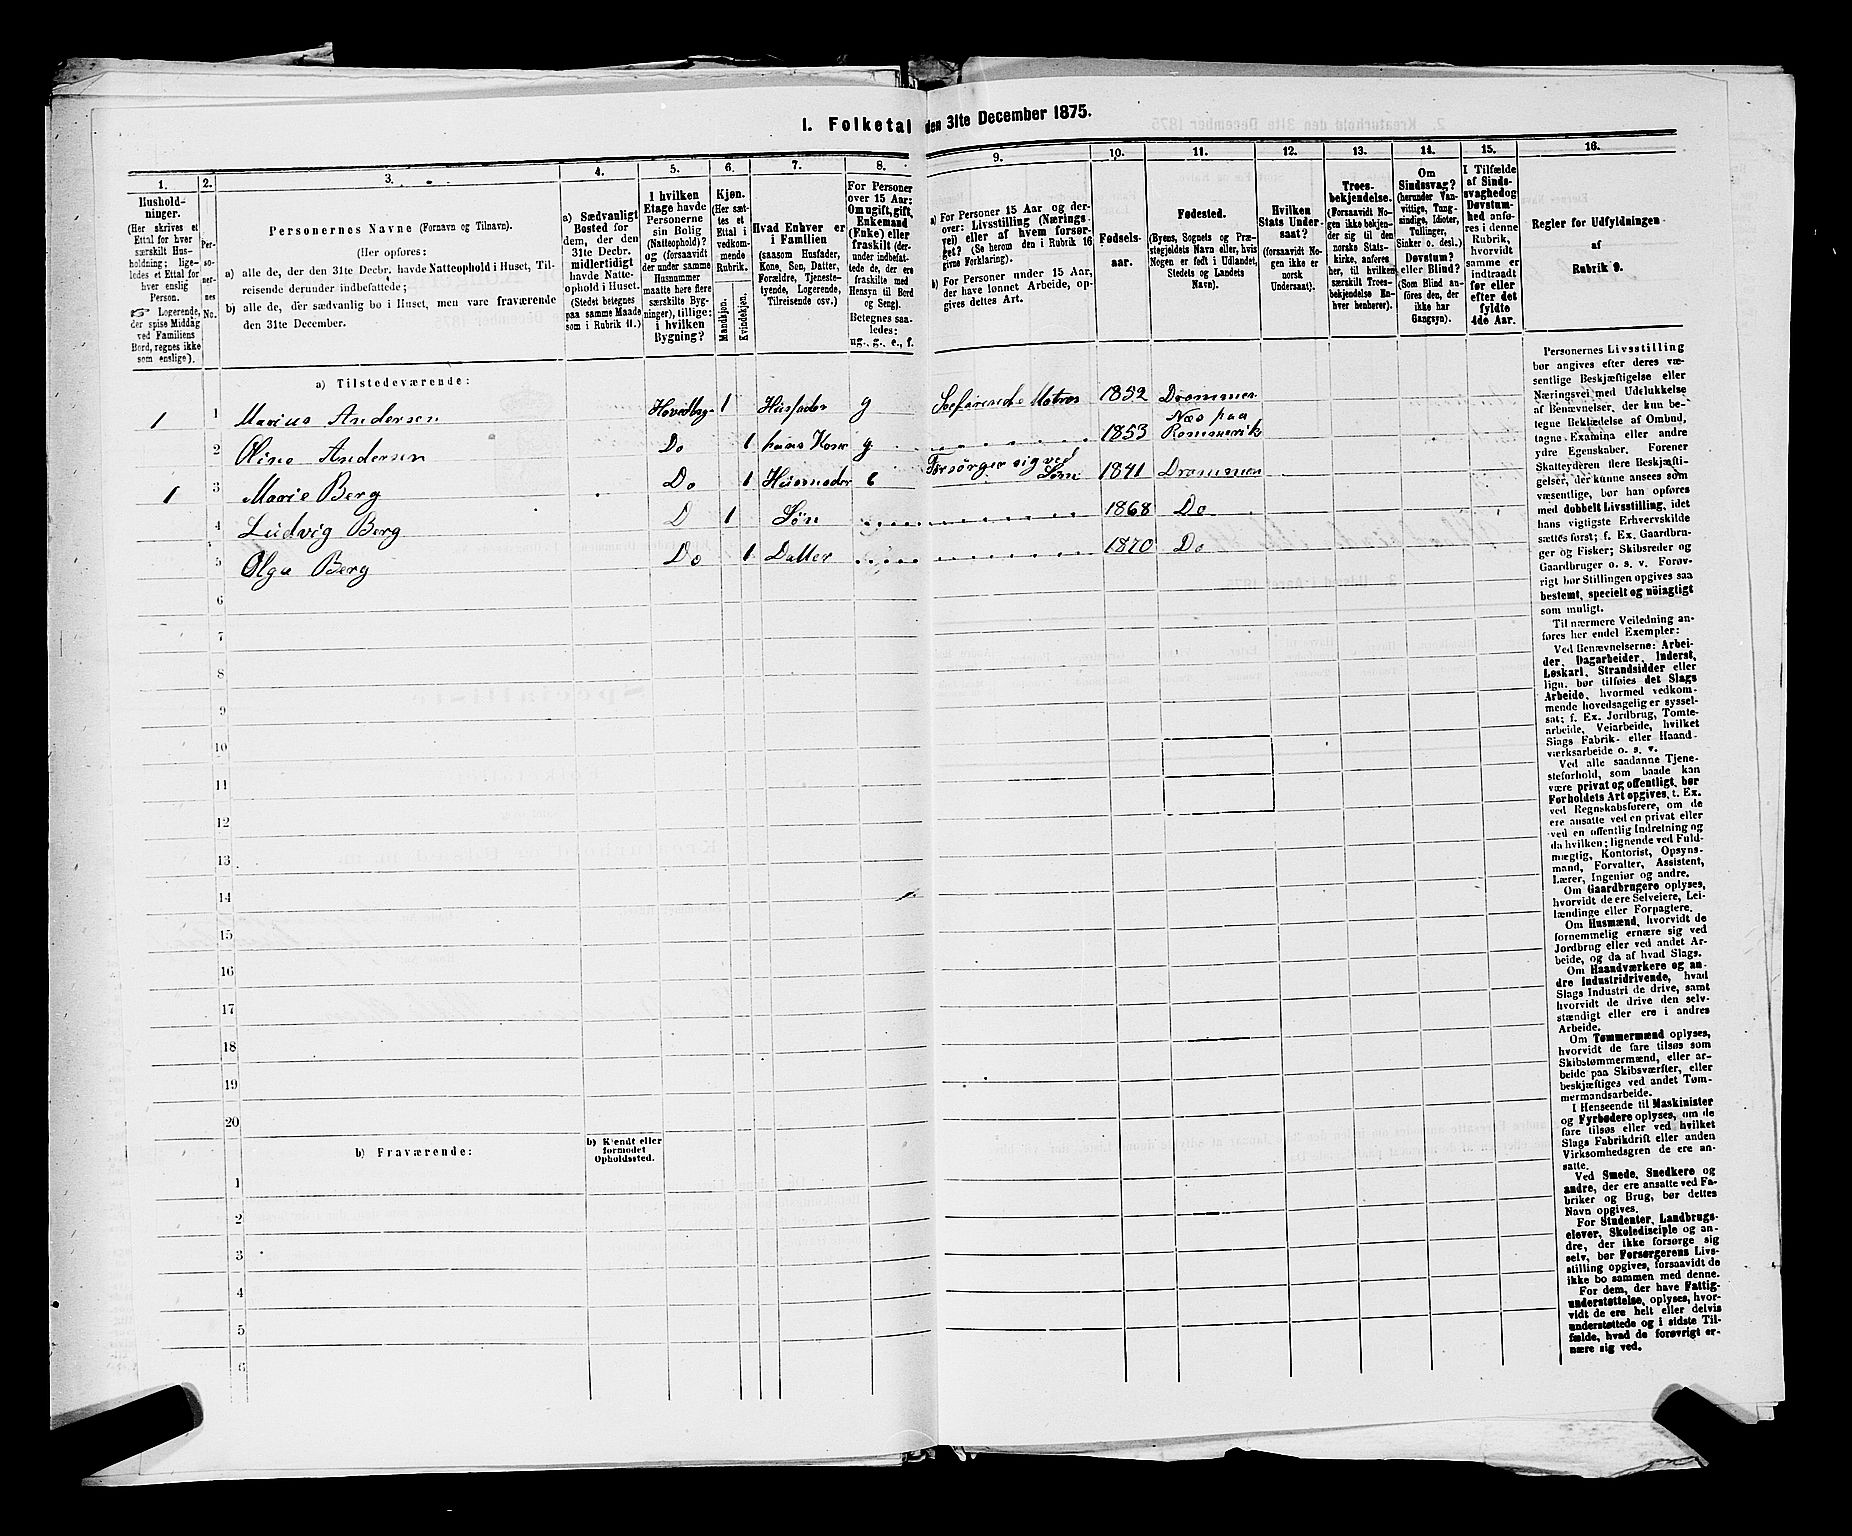 I. Folketal den 31te December 1875.
1. 2. 3. 4. 5. 6. 7. 8. 9. 10. 11. 12. 13. 14. 15. 16.
Hushold-
ninger.
(Her skrives et
Ettal for hver
særskilt Hus-
holdning; lige-
ledes et Ettal for
hver enslig
Person.
☞ Logerende,
der spise Middag
ved Familiens
Bord, regnes ikke
som enslige).
Per-
so-
ner-
nes
No.
Personernes Navne (Fornavn og Tilnavn).
(Her opføres:
a) alle de, der den 31te Decbr. havde Natteophold i Huset, Til-
reisende derunder indbefattede;
b) alle de, der sædvanlig bo i Huset, men vare fraværende
den 31te December.
a) Sædvanligt
Bosted for
dem, der den
31te Decbr.
midlertidigt
havde Natte-
ophold i Huset.
(Stedet betegnes
paa samme Maade
som i Rubrik 11.)
I hvilken
Etage havde
Personerne
sin Bolig
(Natteophold)?
og (forsaavidt
der under samme
Husnummer
maatte høre flere
særskilte Byg-
ninger), tillige:
i hvilken
Bygning?
Kjøn.
(Her sæt-
tes et
Ettal i
vedkom-
mende
Rubrik.
Mandkjøn.
Kvindekjøn.
Hvad Enhver er
i Familien
(saasom Husfader,
Kone, Søn, Datter,
Forældre, Tjeneste-
tyende, Logerende,
Tilreisende osv.)
For Personer
over 15 Aar:
Om ugift, gift,
Enkemand
(Enke) eller
fraskilt (der-
under indbefat-
tede de, der ere
fraskilte med
Hensyn til Bord
og Seng).
Betegnes saa-
ledes:
ug., g., e., f.
a) For Personer 15 Aar og der-
over: Livsstilling (Nærings-
vei) eller af hvem forsør-
get? (Se herom den i Rubrik 16
givne Forklaring).
b) For Personer under 15 Aar,
der have lønnet Arbeide, op-
gives dettes Art.
Fødsels-
aar.
Fødested.
(Byens, Sognets og Præ-
stegjeldets Navn eller, hvis
Nogen er født i Udlandet,
Stedets og Landets
Navn).
Hvilken
Stats Under-
saat?
(forsaavidt No-
gen ikke er
norsk
Undersaat).
Troes-
bekjendelse.
(Forsaavidt No-
gen ikke bekjen-
der sig til den
norske Stats-
kirke, anføres
her, til hvilken
særskilt Troes-
bekjendelse En-
hver henhører).
Om
Sindssvag?
(herunder Van-
vittige, Tung-
sindige, Idioter,
Tullinger,
Sinker o. desl.)
Døvstum?
eller Blind?
(Som Blind an-
føres den, der
ikke har
Gangsyn).
I Tilfælde
af Sinds-
svaghed og
Døvstum-
hed anfø-
res i denne
Rubrik,
hvorvidt
samme er
indtraadt
før eller
efter det
fyldte
4de Aar.
Regler for Udfyldningen
af
Rubrik 9.
a) Tilstedeværende:
1 1 Marius Andersen Hovedbyg- 1 Husfader g Søfarende Matros 1852 Drammen
2 Oline Andersen Do 1 hans Kone g 1853 Næs paa Rommerik
1 3 Marie Berg Do 1 Husmoder e Forsørger sig ved Søm 1841 Drammen
4 Ludvig Berg D 1 Søn 1868 Do
5 Olga Berg Do 1 Datter 1870 Do
6
7
8
9
10
11
12
13
14
15
16
17
18
19
20
b) Fraværende:
b) Kjendt eller
formodet
Opholdssted.
1
2
3
4
5
6
Personernes Livsstilling
bør angives efter deres væ-
sentlige Beskjæftigelse eller
Næringsvei med Udelukkelse
af Benævnelser, der kun be-
tegne Beklædelse af Ombud,
tagne Examina eller andre
ydre Egenskaber. Forener
Skatteyderen flere Beskjæfti-
gelser, der kunne ansees som
væsentlige, bør han opføres
med dobbelt Livsstilling, idet
hans vigtigste Erhvervskilde
sættes først; f. Ex. Gaardbru-
ger og Fisker; Skibsreder og
Gaardbruger o. s. v. Forøv-
rigt bør Stillingen opgives saa
bestemt, specielt og nöiagtigt
som muligt.
Til nærmere Veiledning an-
føres her endel Exempler:
Ved Benævnelserne: Arbei-
der, Dagarbeider, Inderst,
Løskarl, Strandsidder eller
lign. bør tilføies det Slags
Arbeide, hvormed vedkom-
mende hovedsagelig er syssel-
sat; f. Ex. Jordbrug, Tomte-
arbeide, Veiarbeide, hvilket
Slags Fabrik- eller Haand-
værksarbeide o. s. v.
Ved alle saadanne Tjene-
steforhold, som baade kan
være privat og offentligt, bør
Forholdets Art opgives, t. Ex.
ved Regnskabsførere, om de
ere ansatte ved en privat eller
ved en offentlig Indretning og
da hvilken; lignende ved Fuld-
mægtig, Kontorist, Opsyns-
mand, Forvalter, Assistent,
Lærer, Ingeniør og andre.
Om Gaardbrugere oplyses,
hvorvidt de ere Selveiere, Lei-
lændinge eller Forpagtere.
Om Husmænd, hvorvidt de
fornemmelig ernære sig ved
Jordbrug eller ved andet Ar-
beide, og da af hvad Slags.
Om Haandværkere og an-
dre Industridrivende, hvad
Slags Industri de drive, samt
hvorvidt de drive den selv-
stændigt eller ere i andres
Arbeide.
Om Tømmermænd oplyses,
hvorvidt de fare tilsøs som
Skibstømmermænd, eller ar-
beide paa Skibsværfter, eller
beskjæftiges ved andet Tøm-
mermandsarbeide.
I Henseende til Maskinister
og Fyrbødere oplyses, om de
fare tilsøs eller ved hvilket
Slags Fabrikdrift eller anden
Virksomhedsgren de ere an-
satte.
Ved Smede, Snedkere og
andre, der ere ansatte ved Fa-
briker og Brug, bør dettes
Navn opgives.
For Studenter, Landbrugs-
elever, Skoledisciple og an-
dre, der ikke forsørge sig
selv, bør Forsørgerens Livs-
stilling opgives, forsaavidt de
ikke bo sammen med denne.
For dem, der have Fattig-
understøttelse, oplyses, hvor-
vidt de ere helt eller delvis
understøttede og i sidste Til-
fælde, hvad de forøvrigt er-
nære sig ved.